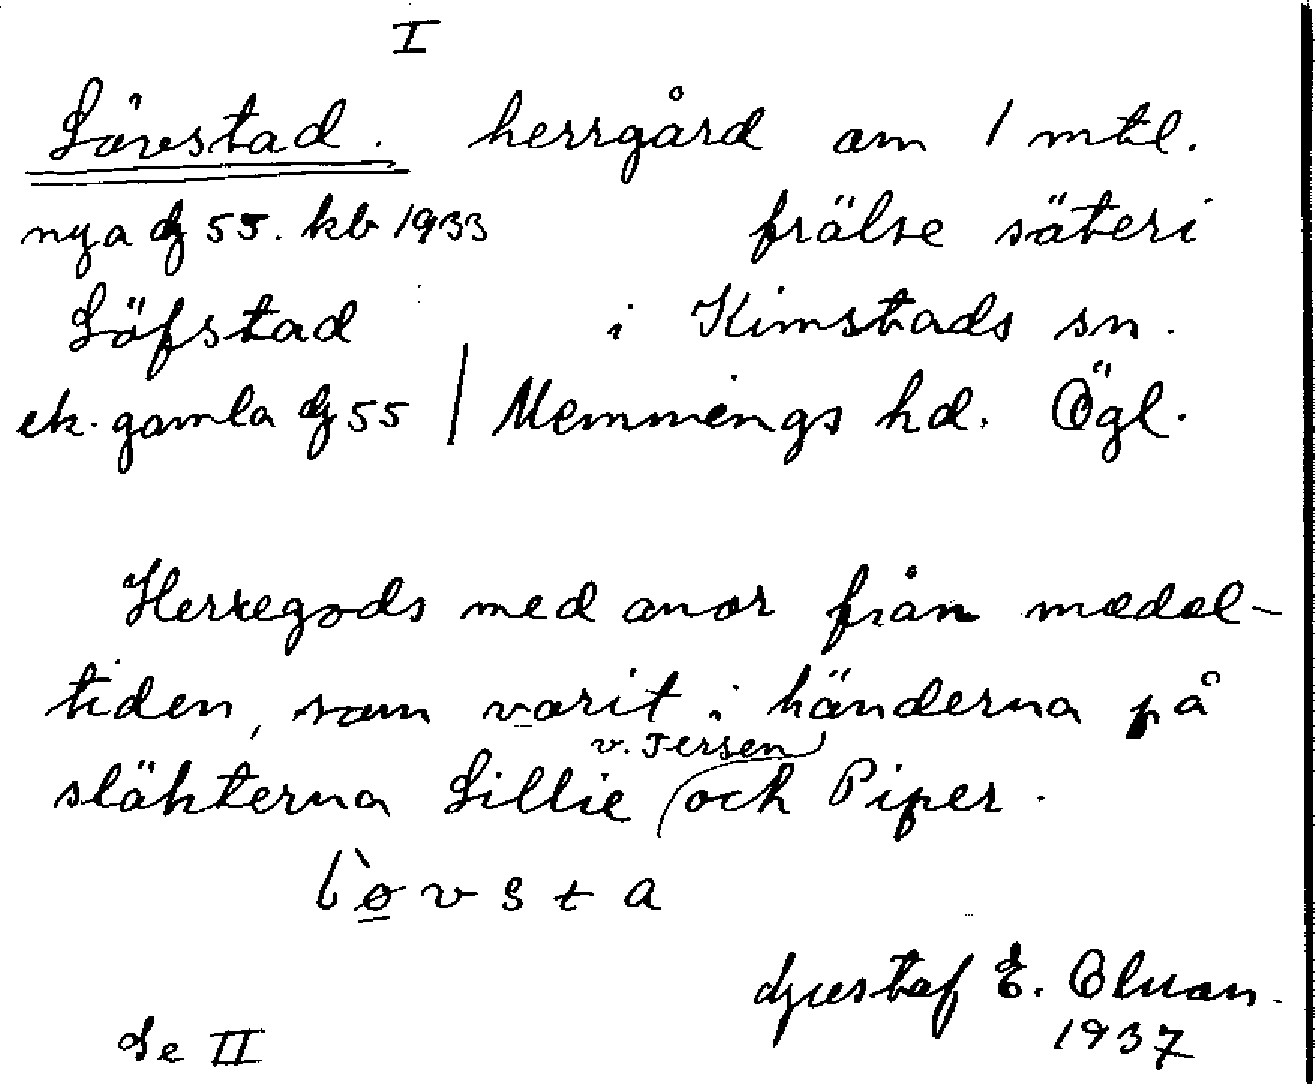 I
Lövstad. herrgård om 1 mtl.
nya dj 55. kb 1933 frälse säteri
Löfstad i Kimstads sn.
ek. gamla dj 55 / Memmings hd. Ögl.
Herregods med anor från medel-
tiden, som varit i händerna på
v. Fersen
släkterna Lillie och Piper.
l ø v s t a
Gustaf E.
1937
Se II